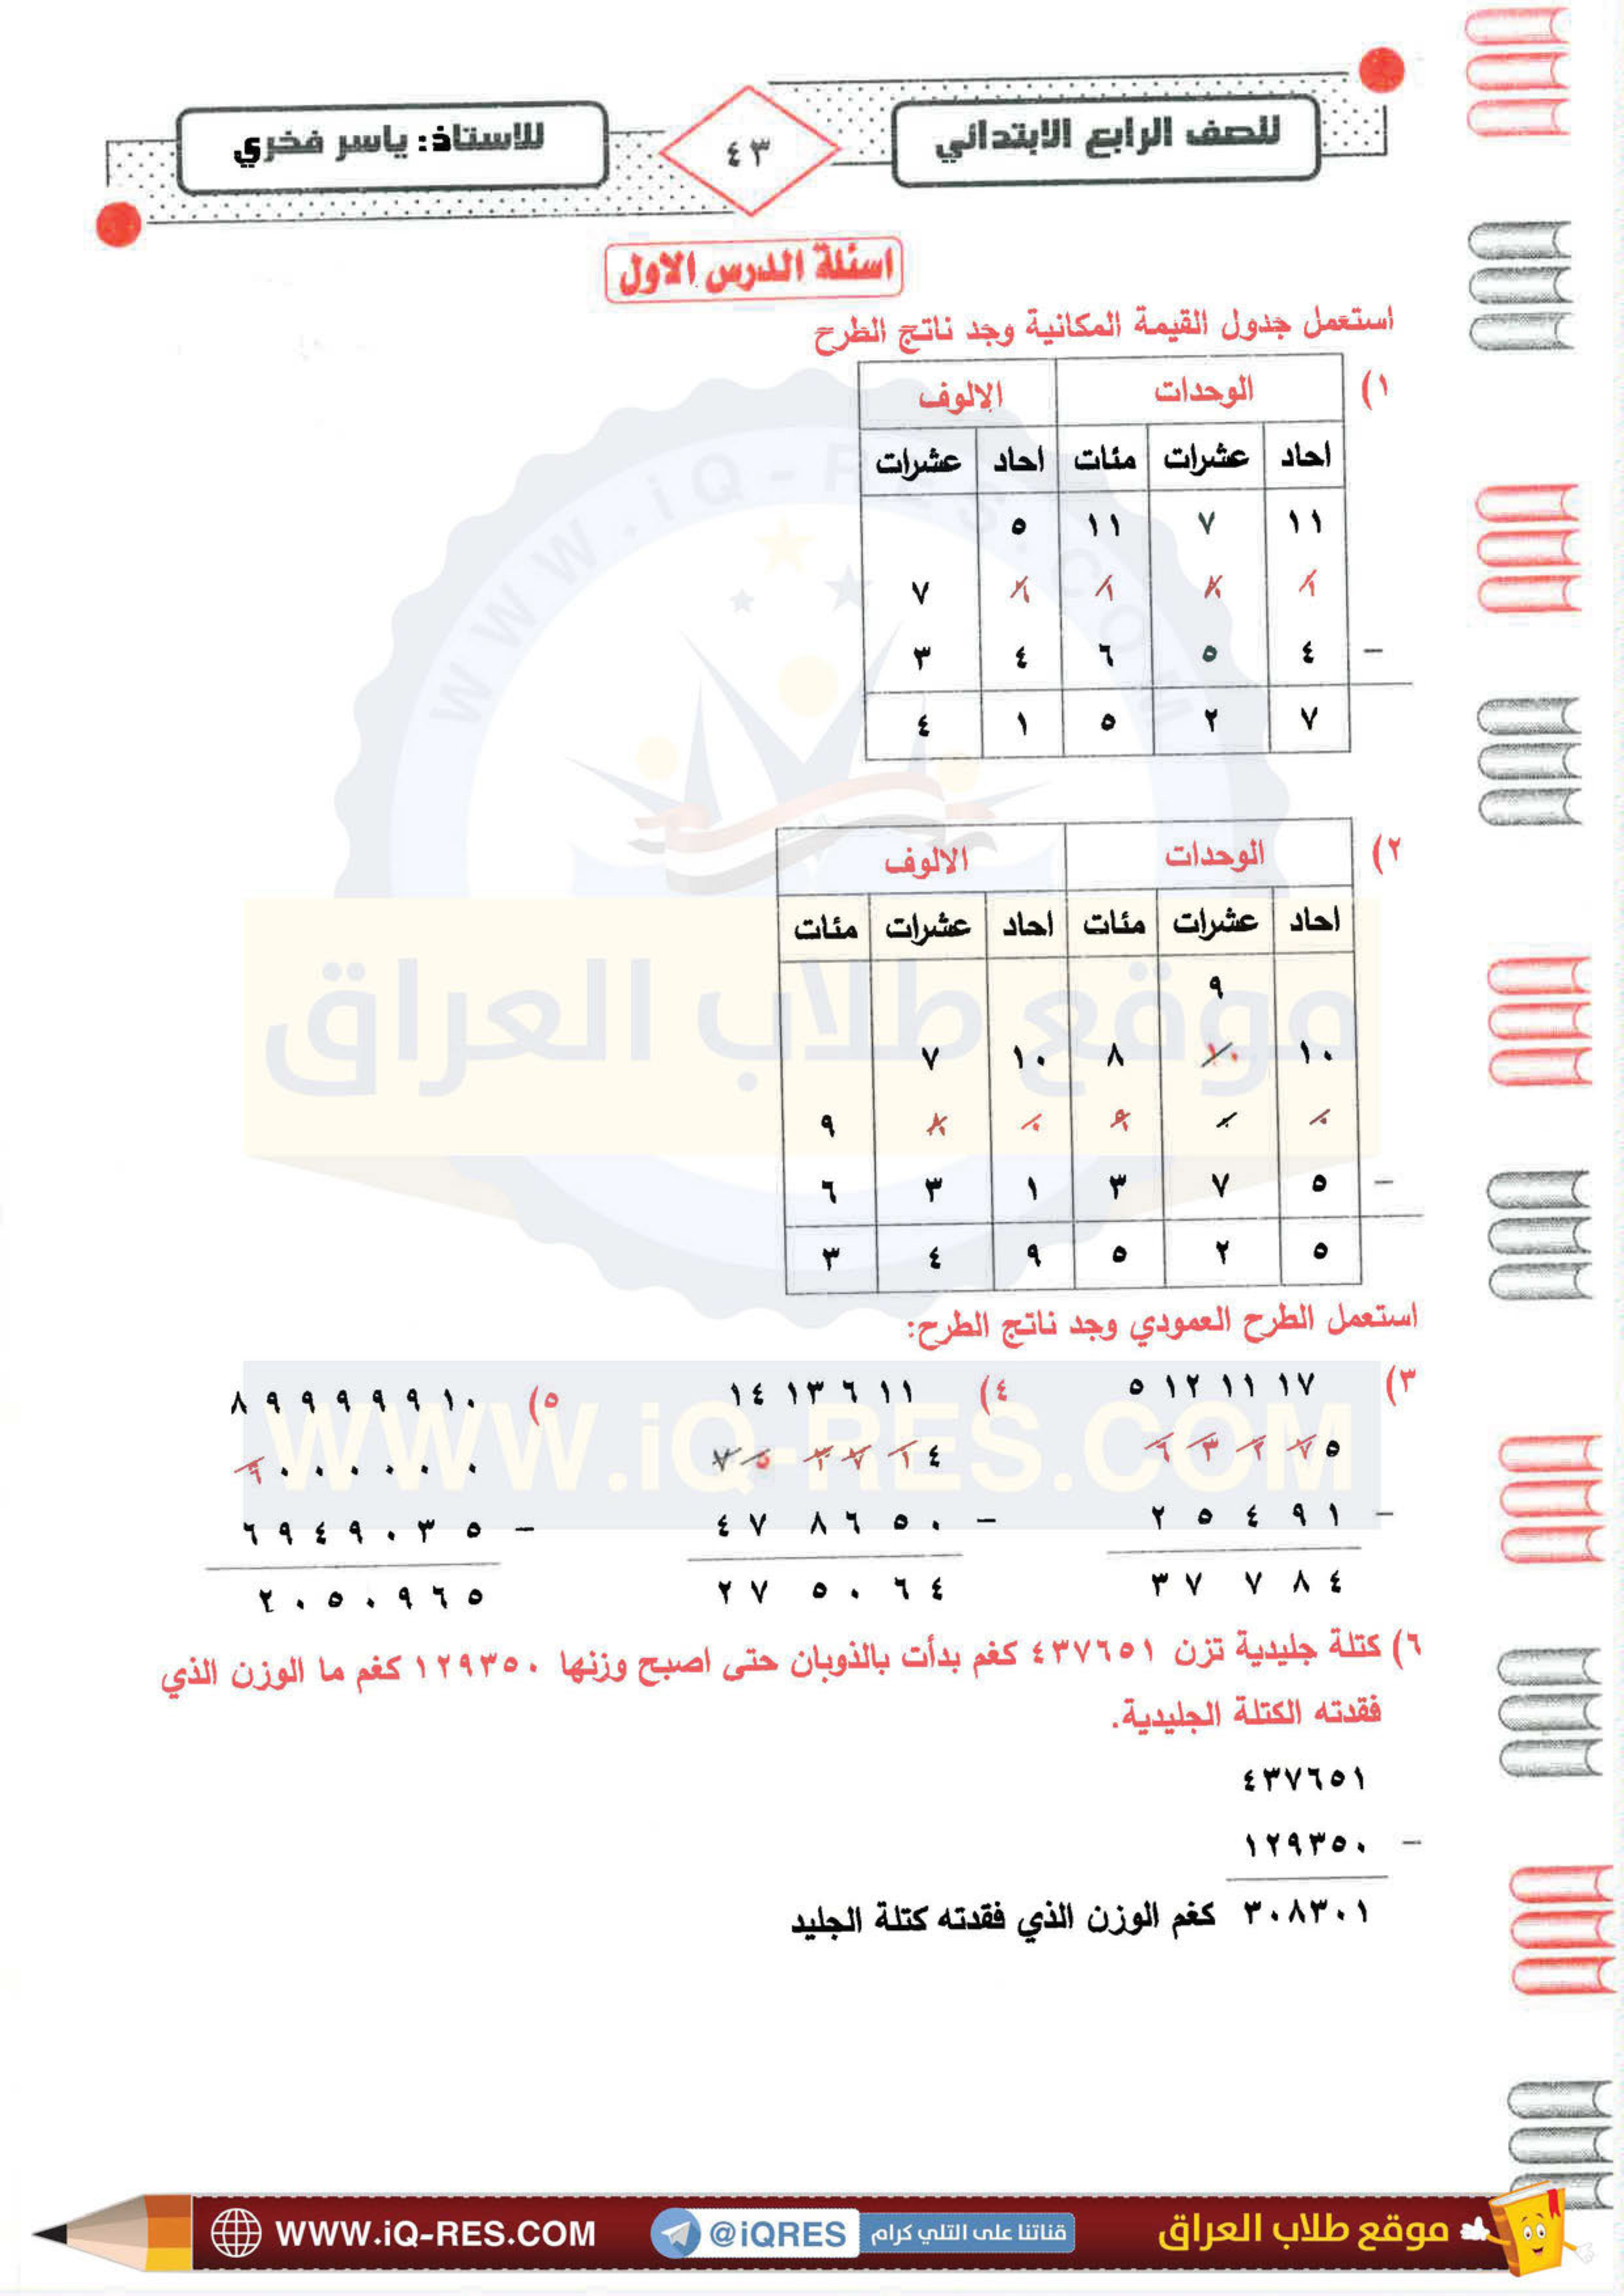 للصف الرابع الابتدائي
٤٣
للاستاذ: ياسر فخري
اسئلة الدرس الاول
استعمل جدول القيمة المكانية وجد ناتج الطرح
١)
الوحدات الالوف
احاد عشرات مئات احاد عشرات
١١ ٧ ١١ ٥
١ ٨ ١ ٦ ٧
٤ ٥ ٦ ٤ ٣ –
٧ ٢ ٥ ١ ٤
٢)
الوحدات الالوف
احاد عشرات مئات احاد عشرات مئات
٩
١٠ ١٠ ٨ ١٠ ٧
٠ ٠ ٩ ٠ ٨ ٩
٥ ٧ ٣ ١ ٣ ٦ –
٥ ٢ ٥ ٩ ٤ ٣
استعمل الطرح العمودي وجد ناتج الطرح:
٣) ٥ ١٢ ١١ ١٧
٦ ٣ ٢ ٧ ٥
٢ ٥ ٤ ٩ ١ –
٣ ٧ ٧ ٨ ٤
٤) ١٤ ١٣ ٦ ١١
٧ ٥ ٣ ٧ ١ ٤
٤ ٧ ٨ ٦ ٥ ٠ –
٢ ٧ ٥ ٠ ٦ ٤
٥) ٨ ٩ ٩ ٩ ٩ ٩ ١٠
٩ ٠ ٠ ٠ ٠ ٠ ٠
٦ ٩ ٤ ٩ ٠ ٣ ٥ –
٢ ٠ ٥ ٠ ٩ ٦ ٥
٦) كتلة جليدية تزن ٤٣٧٦٥١ كغم بدأت بالذوبان حتى اصبح وزنها ١٢٩٣٥٠ كغم ما الوزن الذي
فقدته الكتلة الجليدية.
٤٣٧٦٥١
١٢٩٣٥٠ –
٣٠٨٣٠١ كغم الوزن الذي فقدته كتلة الجليد
WWW.iQ-RES.COM
موقع طلاب العراق
WWW.iQ-RES.COM
موقع طلاب العراق
قناتنا على التلي كرام
@iQRES
WWW.iQ-RES.COM